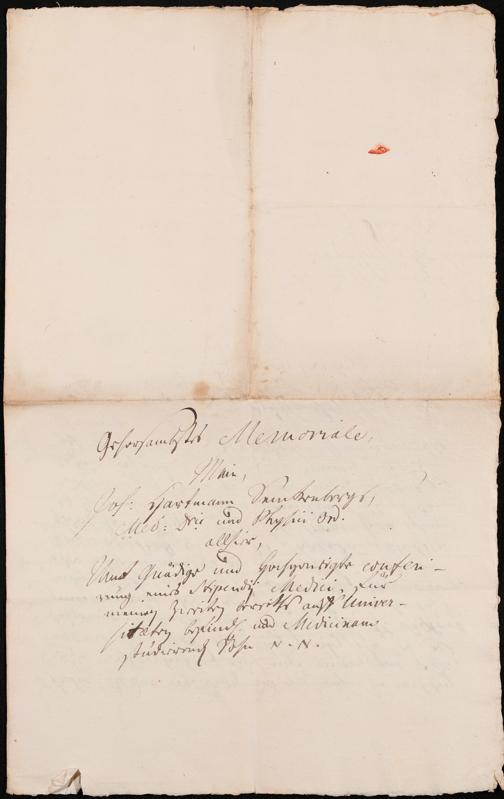 Gehorsambstes Memoriale,
Mein,
Joh: Hartmann Senckenbergs,
Med: Dris und Physici Ord.
allhier,
Umb Gnädige und Hochgeneigte conferi-
rung eines Stipendij Medici, für
meinen Zweiten bereits auff Univer-
sitæten befindl. und Medicinam
studierend. Sohn N. N.